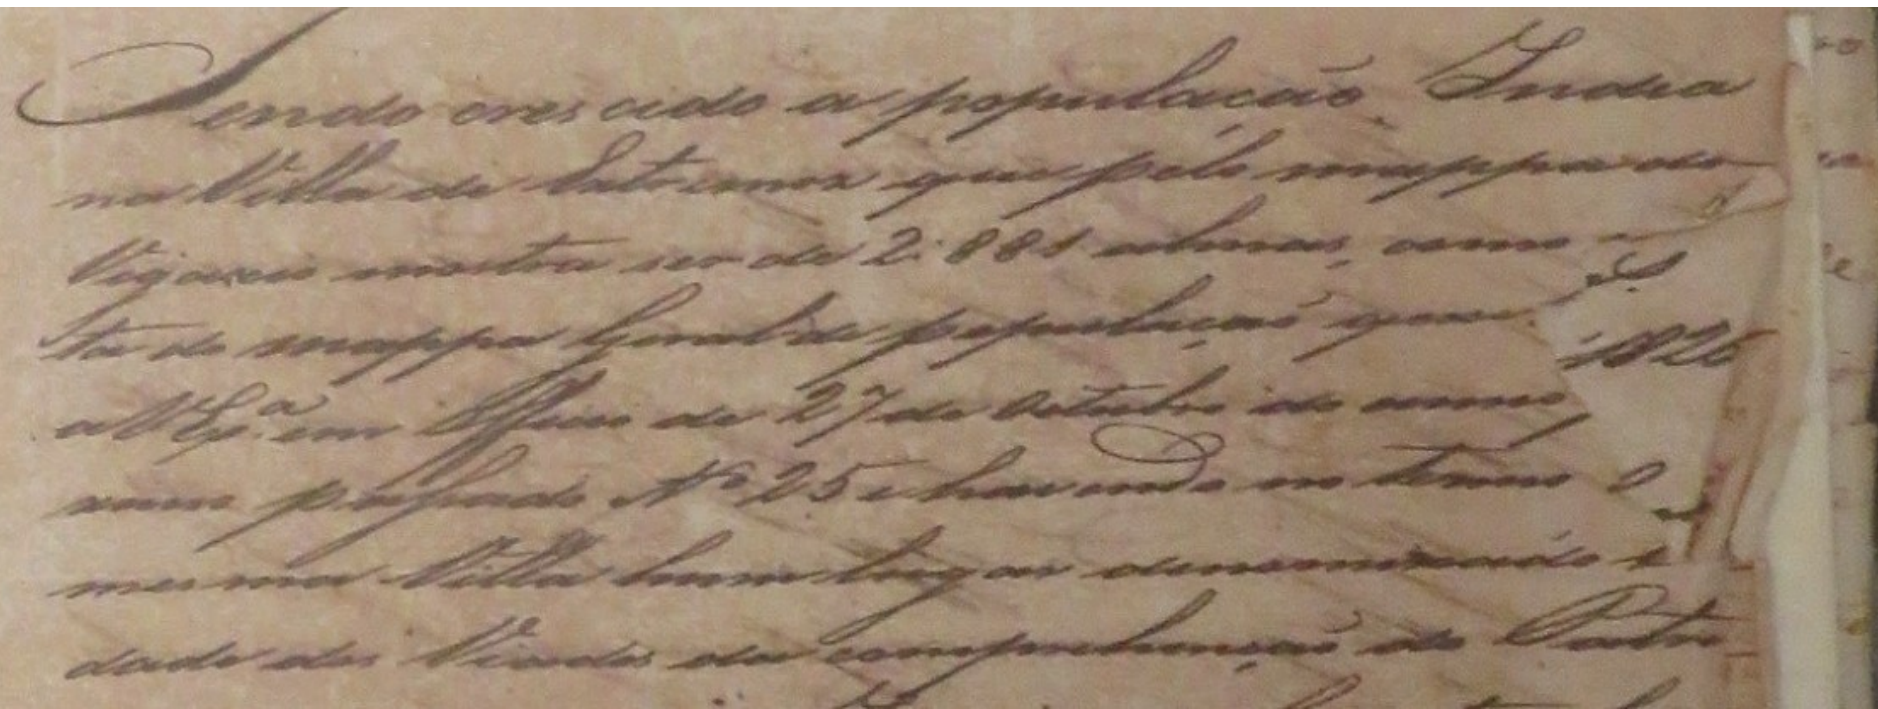 Sendo crescido a população India
na Villa de Extremoz que pelo mappa do
Vigario mostra ser de 2:881 almas, como
ta do mappa Geral de população que
a V Ex.ª em Officio de 27 de Outubro do anno 1826
proximo passado Nº 25 e havendo no termo
mesma Villa hum lugar denominado
dade dos Viados da comprehenção do Patri